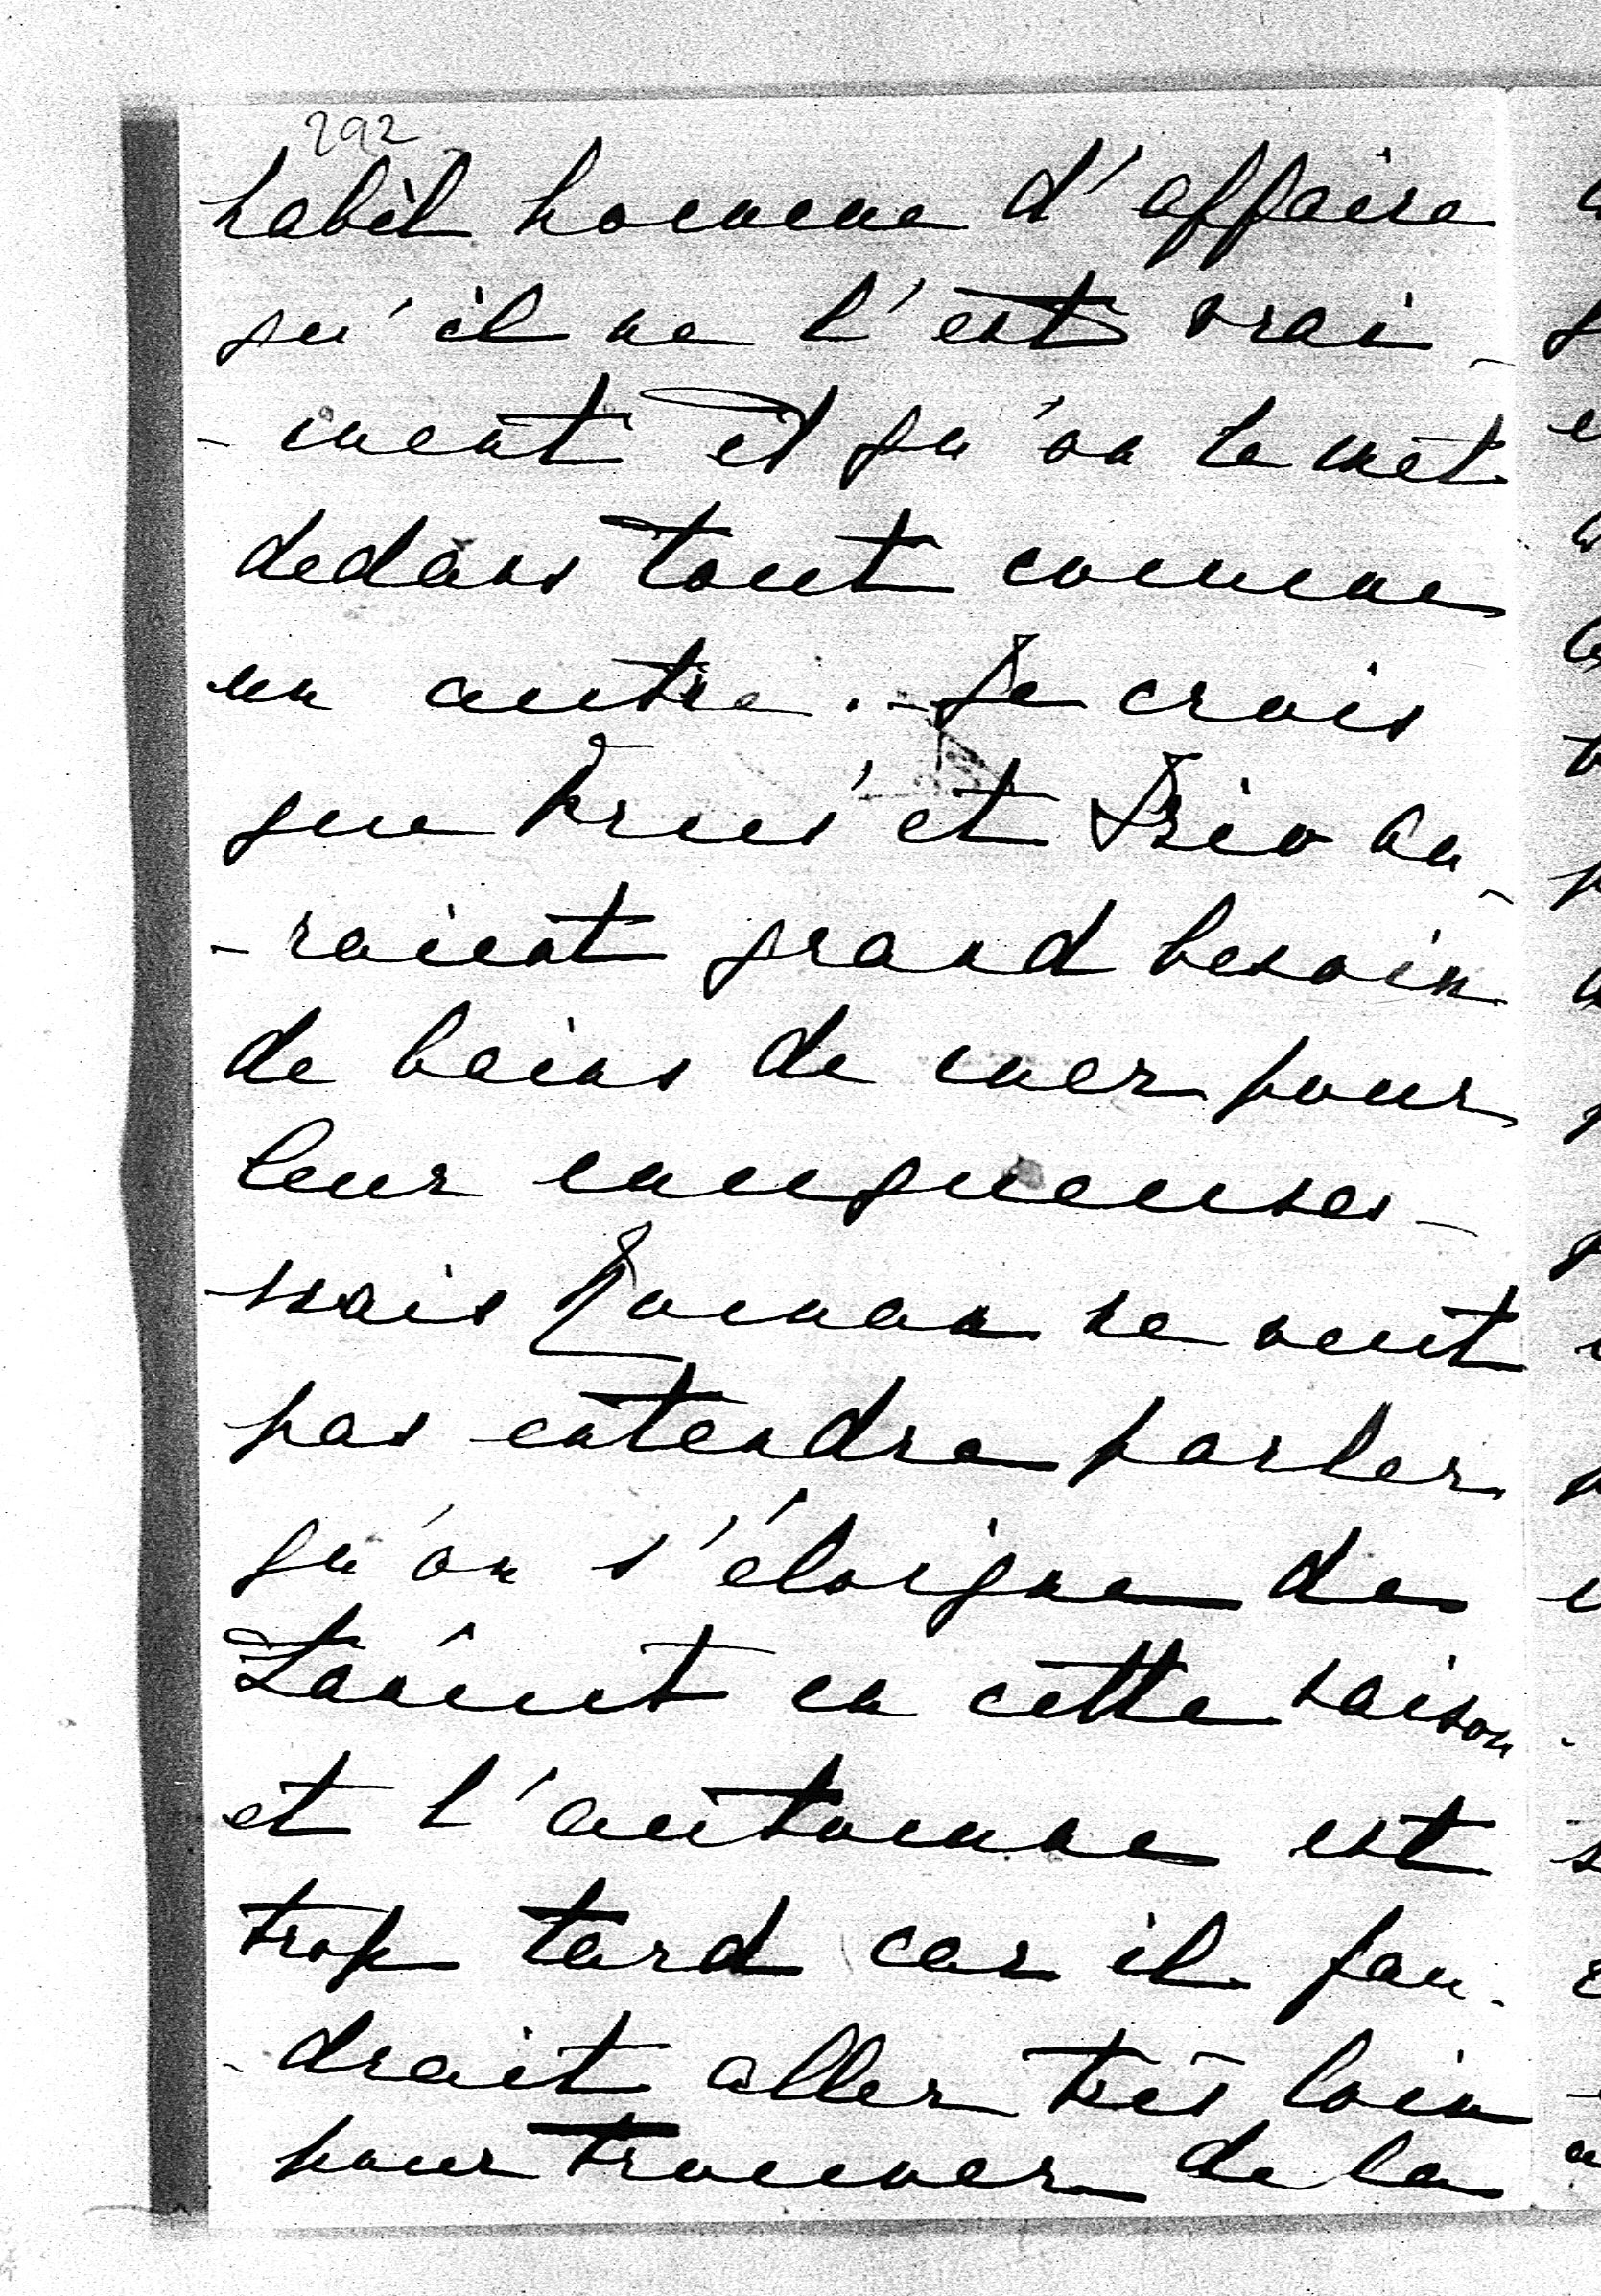 292
habil homme d'affaire
qu'il ne l'est vrai-
-ment et qu'on le met
dedans tout comme
un autre. - Je crois
que et au-
-raient grand besoin
de bains de mer pour
leur muqueuses -
mais Roman ne veut
pas entendre parler
qu'on s'éloigne de
Łańcut en cette saison
et l'automne est
trop tard car il fau-
-drait aller très loin
pour trouver de la